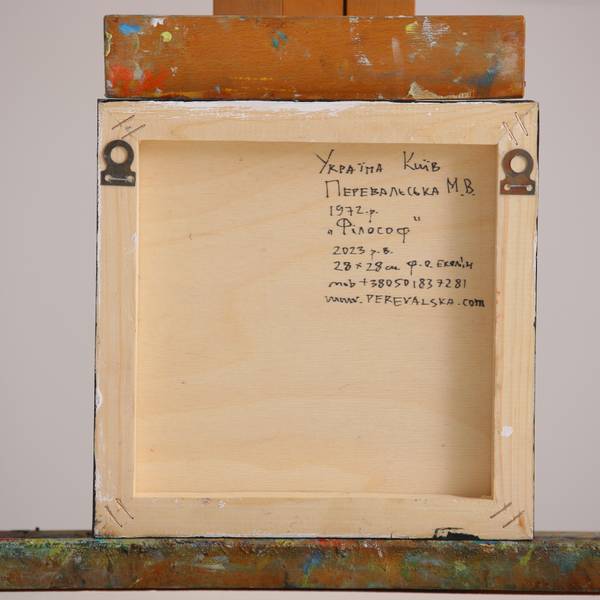 Україна Київ
Перевальська М.В.
1972.р.
„Філософ"
2023 р.в.
28×28см ф.о.
mob +380501837281
www.PEREVALSKA.com